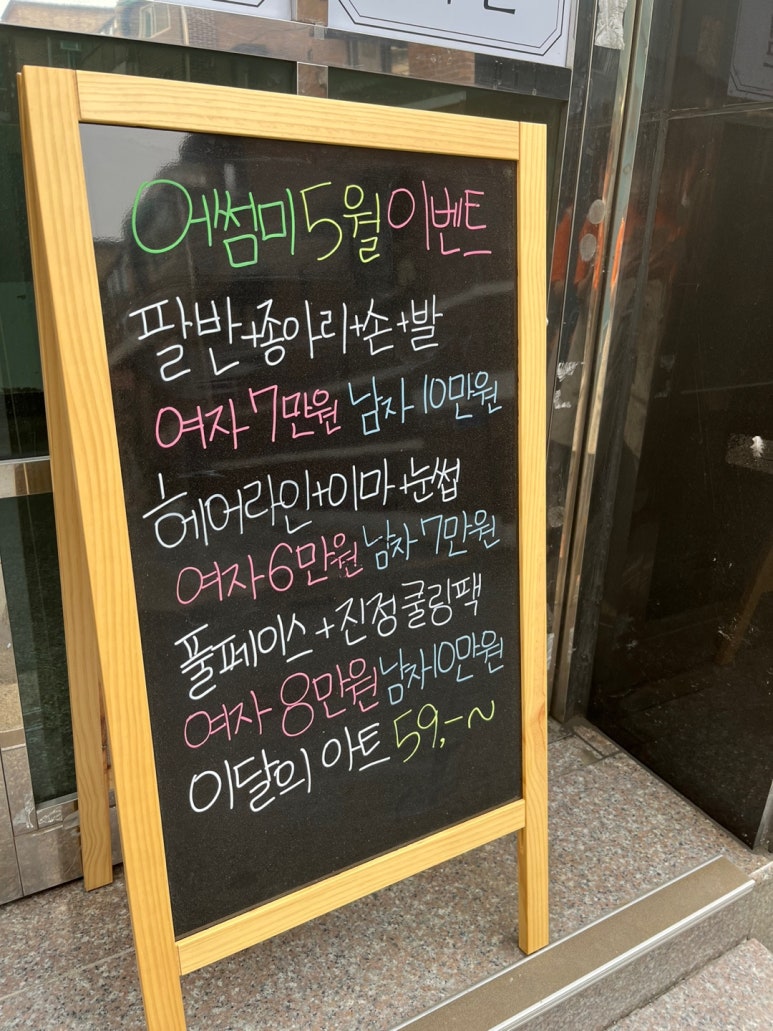 어썸미 5월 이벤트
팔반+종아리+손+발
여자 7만원 남자 10만원
헤어라인+이마+눈썹
여자 6만원 남자 7만원
풀페이스+진정쿨링팩
여자 8만원 남자 10만원
이달의 아트 59,-~